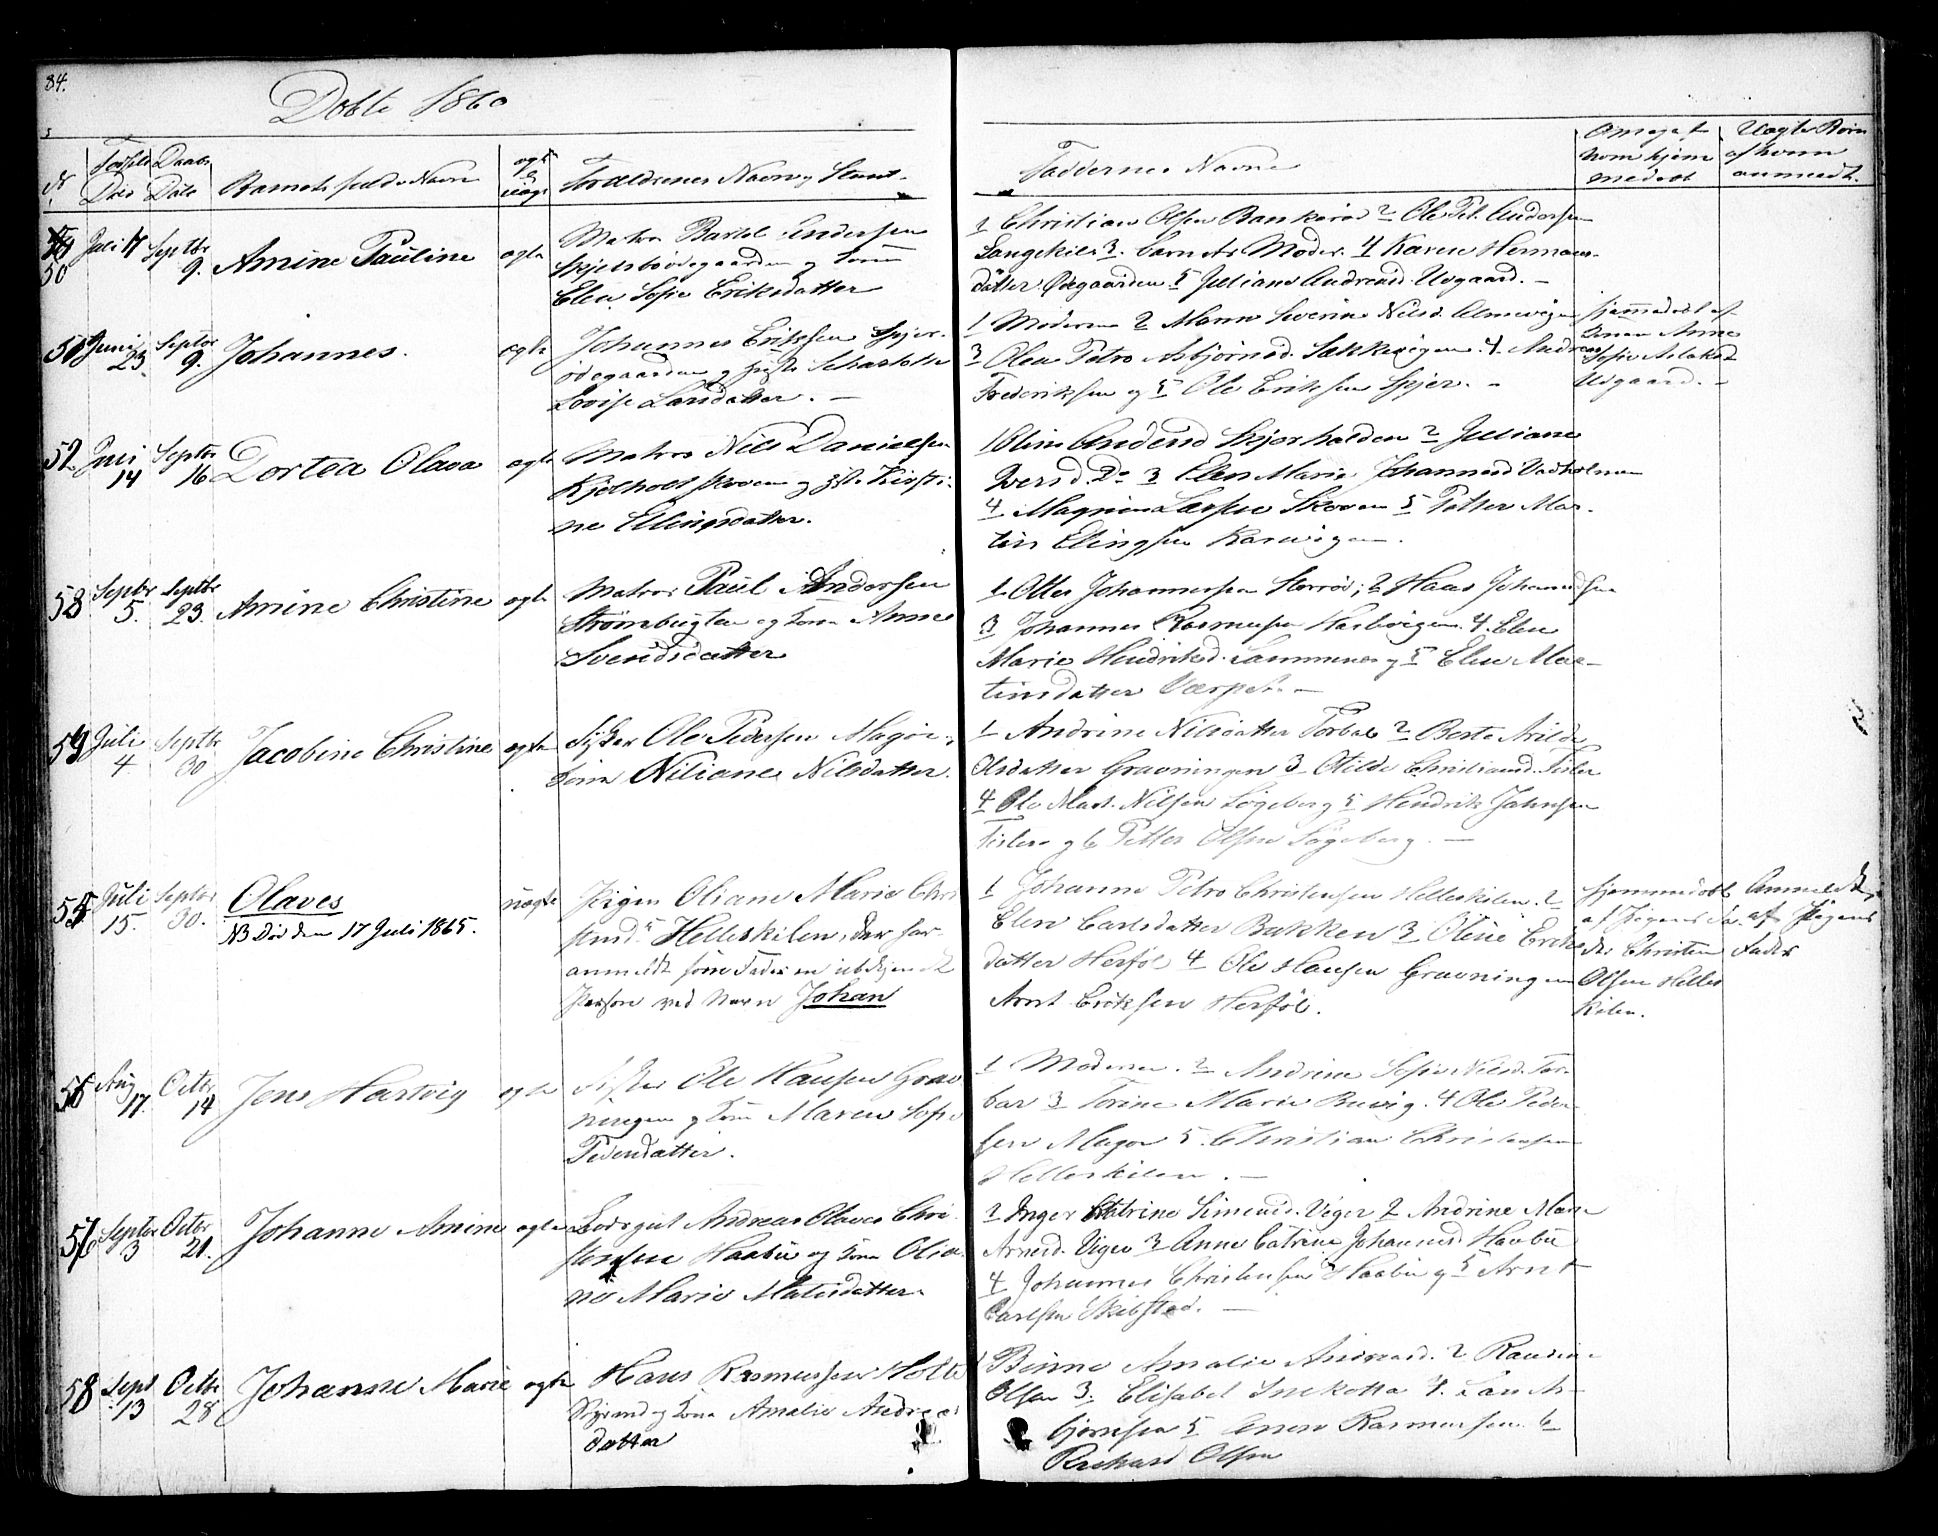 84.
Døbte 1860
Nr
Fødsels Dato
Daabs Dato
Barnets fulde Navn
ægte og uægt
Forældrenes Navn og Stand.
Faddernes Navne
Om og af hvem hjemmedøbt
Uægte Børn af hvem anmeldt.
50
Juli 17
Septbr 9.
Amine Pauline
ægte
Matros Bartel Andersen
Skjelsboødegaarden og Kone
Elen Sofie Eriksdatter
1 Christian Olsen Bankerød 2 Ole Pet. Andersen
Langekile 3. Barnets Moder. 4 Karen Hermans-
datter Ødegaarden 5 Juliane Andreasd. Udgaard. -
51
Juni 23
Septbr 9.
Johannes.
ægte
Johannes Eriksen Spjer-
ødegaarden og Charlotte
Lovise Larsdatter. -
1 Moderen 2 Severine Nilsd.
3 Olea Petra Asbjørnsd. Sækkevigen. 4. Andreas
Frederiksen og 5 Ole Eriksen Spjer. -
hjemmedøbt af
Anne
Sofie
Udgaard. -
52
Juni 14
Septbr 16
Dortea Olava
ægte
Matros Nils Danielsen
Kjølholt Skoven og Kirsti-
ne Ellingsdatter.
1 Oline Andersd Skjærhalden 2 Juliane
Iversd. Do 3 Elen Marie Johannesd Vadholmen
4 Larsen Skoven 5 Petter Mar-
tin Ellingsen
53
Septbr 5.
Septbr 23.
Amine Christine
ægte
Matros Paul Andersen
Strømbugten og Kone Anne
Svendsdatter
1. Johannessen 2 Hans Johannesen
3 Johannes Rasmussen 4. Elen
Marie Hendriksd. og 5 Elen Mar-
tinsdatter -
54
Juli 4
Septbr 30
Jacobine Christine
ægte
Fisker Ole Pedersen Magøe,
Kone Niliane Nilsdatter.
1 Andrine Nilsdatter Torbal 2 Berte
Olsdatter Gravningen 3 Otilde Christiansd. Tisler
4 Ole Mart. Nilsen Løgeberg 5 Hendrik Jahnsen
Tisler og 6 Petter Olsen Løgeberg. -
55
Juli 15.
Septbr 30.
Olaves
NB Død den 17 Juli 1865.
uægte
Pigen Oliane Marie Chri
stensd. Helleskilen, der har
anmeldt som Fader en ubekjendt
Person ved Navn Johan
1 Johanne Petra Christensen Helleskilen. 2
Elen Carlsdatter Bakken 3 Oline Eriks
datter Herføl 4 Ole Hansen Gravningen
Arnt Eriksen Herføl.
hjemmedøbt
af Pigens Fa-
der Christen
Olsen Helles
kilen.
Anmeldt
af Pigens
Fader
56
Aug 17.
Octbr 14
Jens Hartvig
ægte
Fisker Ole Hansen Grav
ningen og Kone Maren Sofie
Pedersdatter.
1 Moderen. 2 Andrine Sofie Nilsd. Tor-
bar 3 Torine Marie 4 Ole Peder-
sen Magøe 5. Christian Christensen
Helleskilen. -
57
Septbr 3
Octbr 21.
Johanne Amine
ægte
Lodsgut Andreas Olaves Chri-
stensen Haabu og Kone Olia-
ne Marie Matisdatter.
1 Inger Catrine Simensd. Viger 2 Andrine Marie
Arnesd. Viger 3 Anne Catrine Johannesd Haabu
4 Johannes Christensen Haabu og 5 Arnt
Carlsen Skibstad. -
58
Sept 13
Octbr 28
Johanne Marie
ægte
Hans Rasmussen Holte
og Kone Amalie Andreas
datter
1 Amalie Andreasd. 2
Olsen 3. Elisabet 4. As-
bjørnsen 5 Rasmussen. 6
Rikard Olsen